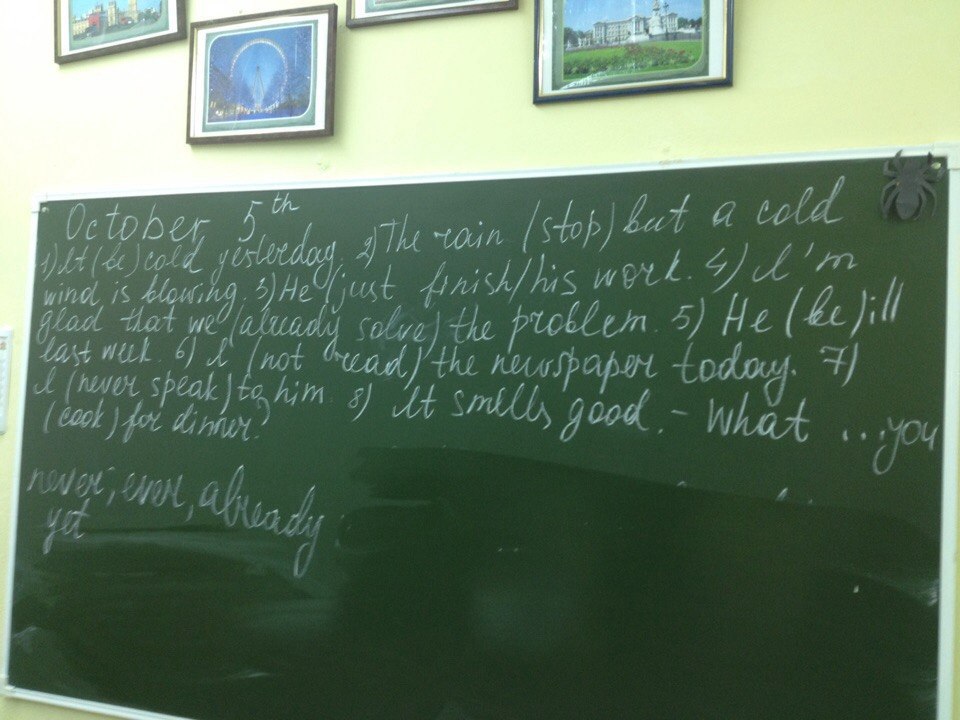 October 5th
1) It (be) cold yesterday. 2) The rain (stop) but a cold
wind is blowing. 3) He (just finish) his work. 4) I'm
glad that we (already solve) the problem. 5) He (be) ill
last week. 6) I (not read) the newspaper today. 7)
I (never speak) to him. 8) It smells good. - What ... you
(cook) for dinner?
never, ever, already
yet